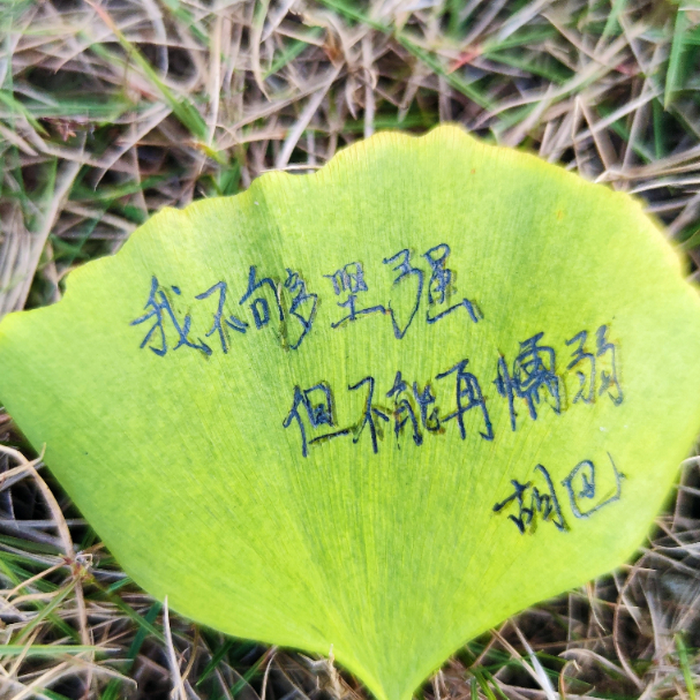 我不够坚强
但不能再懦弱
胡巴